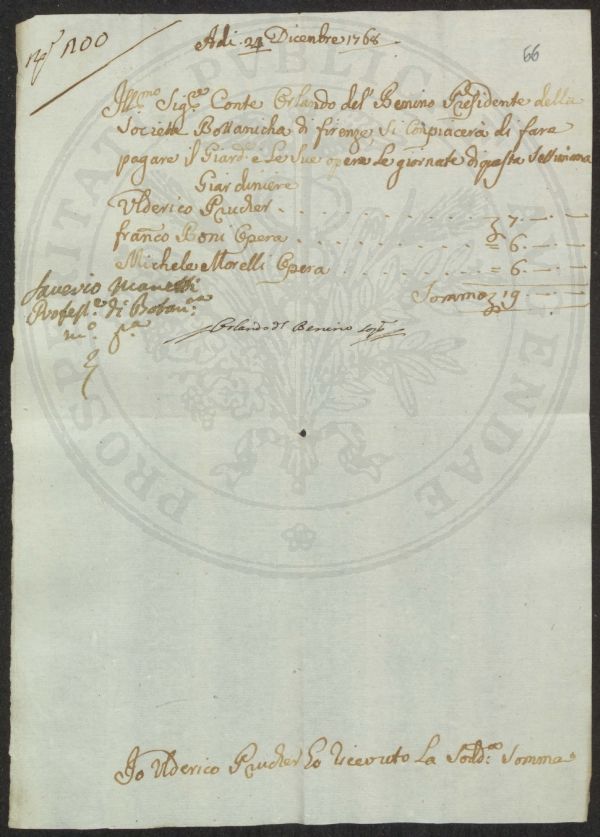 N.º 1200
Adi. 24 Dicembre 1768
66
Ill:mo Sig:re Conte Orlando del Benino Presidente della
Societa Bottanicha di firenze, Si Conpiacerà di fara
pagare il Giard:e e Le Sue opera Le giornate di qsta Settimana
Giardiniere
Ulderico Prucher . . . . . . . 7. — —
franco Boni Opera . . . . . . . = 6. — —
Michele Morelli Opera . . . . . . = 6. — —
Somma 19 — —
Saverio Manetti
Profess:e di Botan:ca
m:o p:a
Orlando d:l Benino
Io Ulderico Prucher ho ricevuto La Sodd:a Somma
PROSPERITATI PUBLICAE AUGENDAE